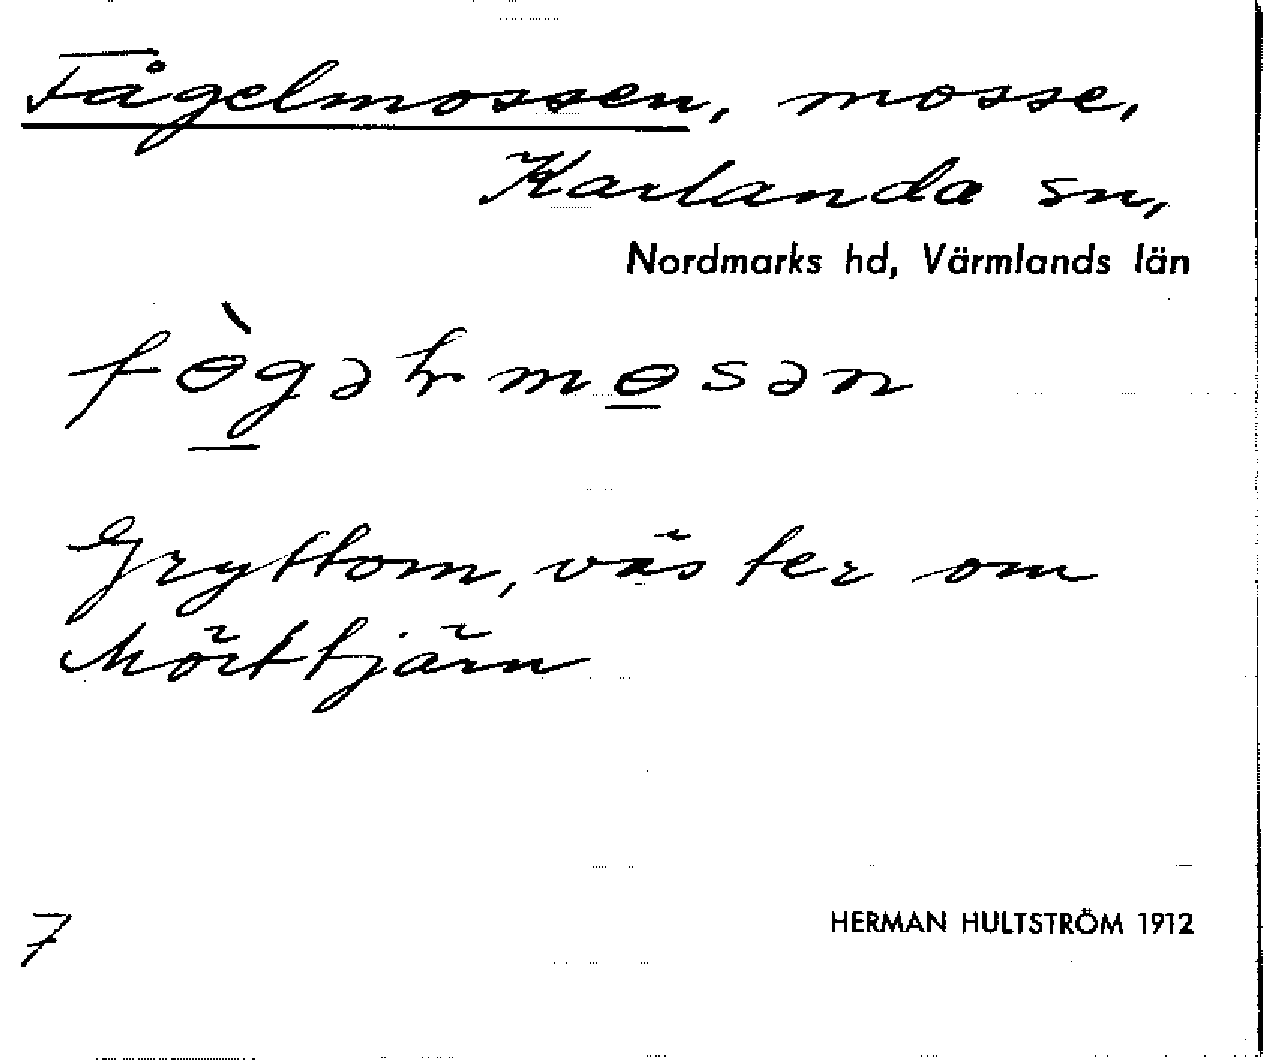 Fågelmossen, mosse,
Karlanda sn,
Nordmarks hd, Värmlands län
Gryttom, väster om
Mörttjärn
7
HERMAN HULTSTRÖM 1912